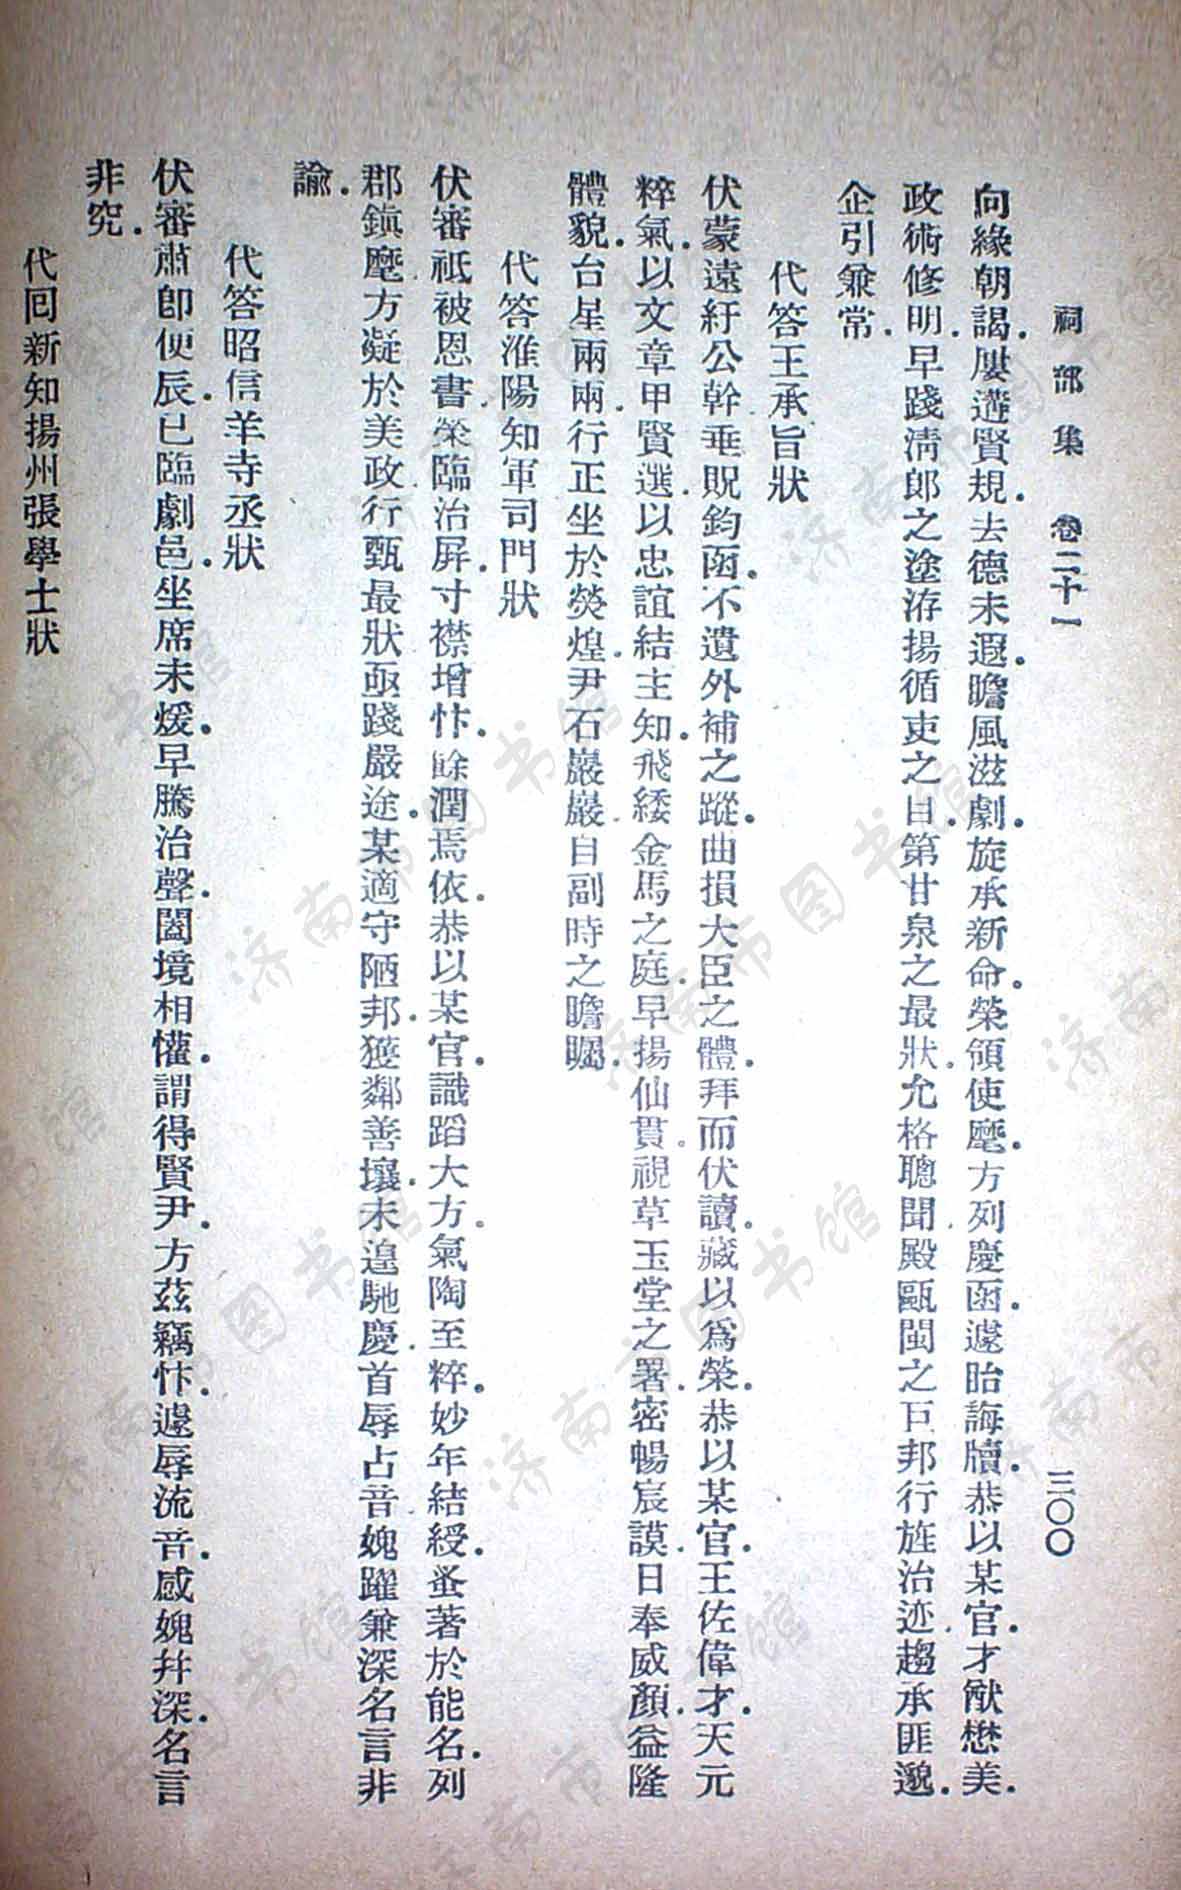 祠部集　卷二十一　三〇〇
向緣朝謁．屢遘賢規．去德未遐．瞻風滋劇．旋承新命．榮領使麾．方列慶函．遽貽誨牘．恭以某官．才猷懋美．
政術修明．早踐淸郞之塗．洊揚循吏之目．第甘泉之最狀．允格聰聞．殿甌閩之巨邦．行旌治迹．趨承匪邈．
企引兼常．
代答王承旨狀
伏蒙遠紆公幹．垂貺鈞函．不遺外補之蹤．曲損大臣之體．拜而伏讀．藏以爲榮．恭以某官．王佐偉才．天元
粹氣．以文章甲賢選．以忠誼結主知．飛緌金馬之庭．早揚仙貫．視草玉堂之署．密暢宸謨．日奉威顏．益隆
體貌．台星兩兩．行正坐於熒煌．尹石巖巖．自副時之瞻矚．
代答淮陽知軍司門狀
伏審祗被恩書．榮臨治屏．寸襟增忭．餘潤焉依．恭以某官．識蹈大方．氣陶至粹．妙年結綬．蚤著於能名．列
郡鎭麾．方凝於美政．行甄最狀．亟踐嚴途．某適守陋邦．獲鄰善壤．未遑馳慶．首辱占音．媿躍兼深．名言非
諭．
代答昭信羊寺丞狀
伏審肅卽便辰．已臨劇邑．坐席未煖．早騰治聲．闔境相懽．謂得賢尹．方茲竊忭．遽辱流音．感媿幷深．名言
非究．
代回新知揚州張學士狀